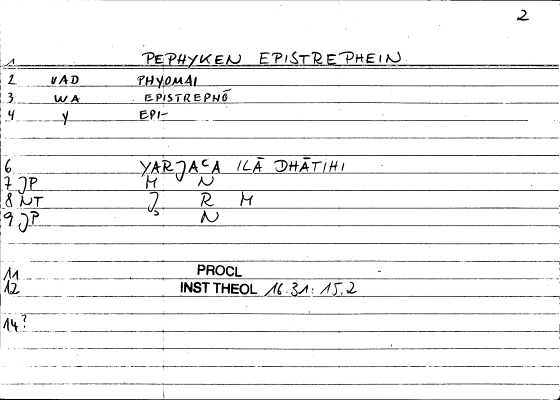 2
1 PEPHYKEN EPISTREPHEIN
2 VAD PHYOMAI
3 WA EPISTREPHŌ
4 Y EPI-
6 YARJAᶜA ILĀ DHĀTIHI
7 JP M N
8 NT J R M
9 JP N
11 PROCL
12 INST THEOL 16.31: 15.2
14?